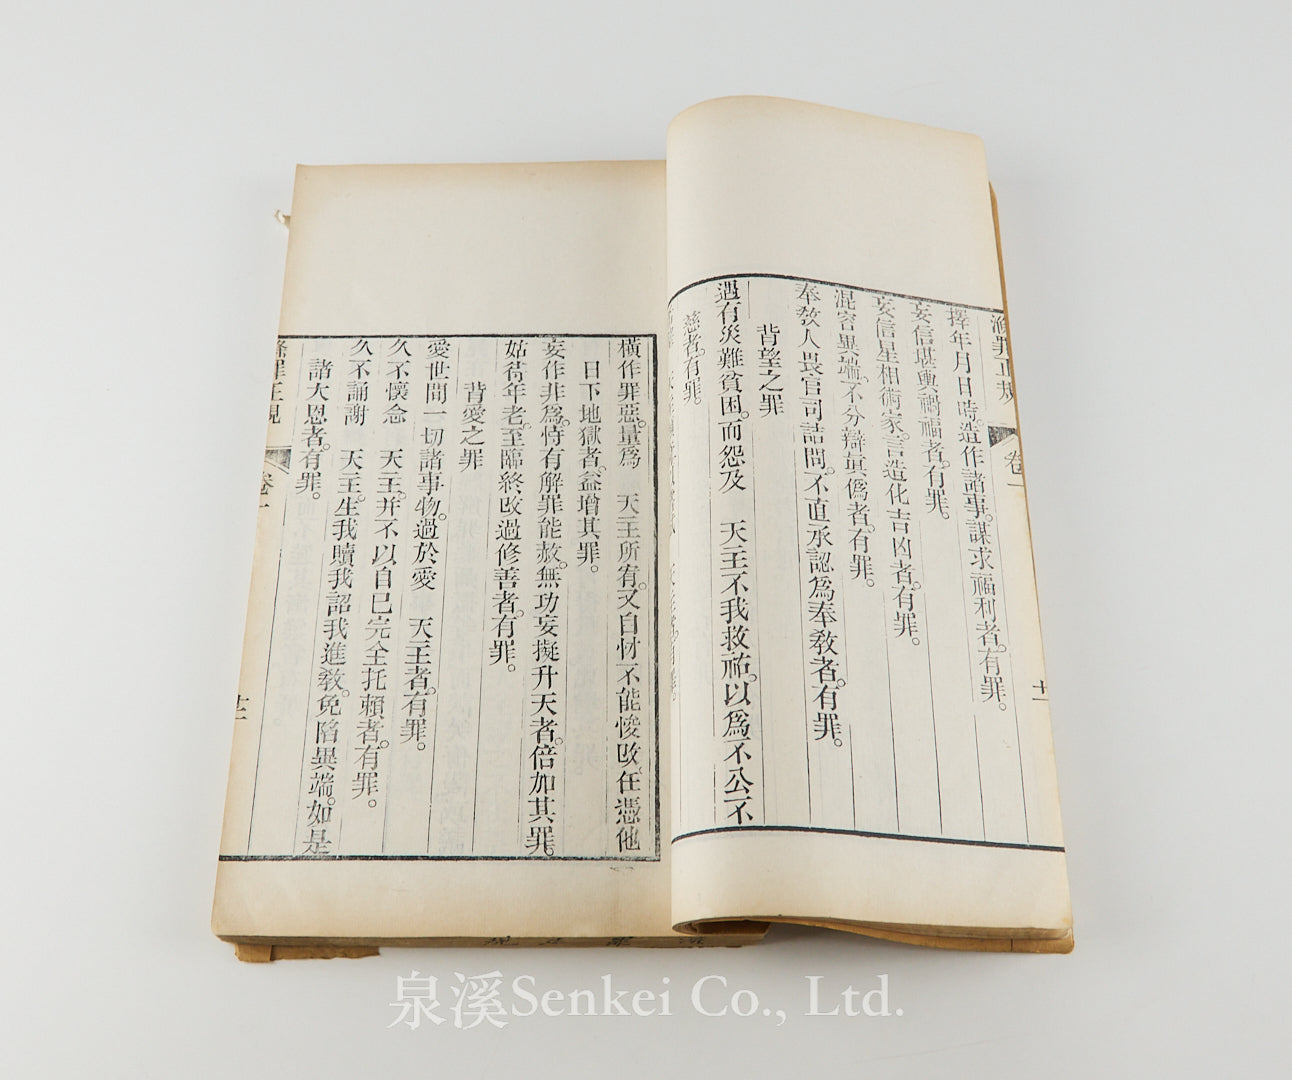 滌罪正規
卷一
十一
擇年月日時。造作諸事。謀求福利者。有罪。
妄信堪輿禍福者。有罪。
妄信星相術家。言造化吉凶者。有罪。
混容異端。不分辯眞僞者。有罪。
奉敎人畏官司詰問。不直承認爲奉敎者。有罪。
背望之罪
遇有災難貧困。而怨及　天主不我救祐。以爲不公不
慈者。有罪。
橫作罪惡。量爲　天主所宥。又自忖不能悛改。任憑他
日下地獄者。益增其罪。
妄作非爲。恃有解罪能赦。無功妄擬升天者。倍加其罪。
姑待年老。至臨終改過修善者。有罪。
背愛之罪
愛世間一切諸事物。過於愛　天主者。有罪。
久不懷念　天主。并不以自己完全托賴者。有罪。
久不誦謝　天主。生我贖我詔我進敎。免陷異端。如是
諸大恩者。有罪。
滌罪正規
卷一
十二
泉溪Senkei Co., Ltd.